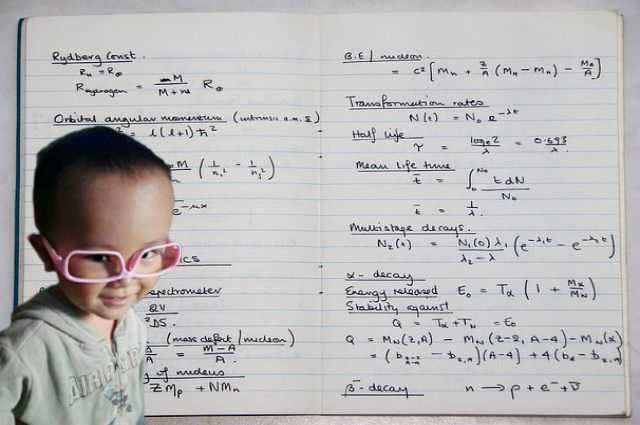 Rydberg Const.
R∞ = R∞
R hydrogen = M / M + m R∞
Orbital angular momentum (intrinsic a.m. s)
² = l(l+1) ħ²
M ( 1/n₁² - 1/n₂² )
e^-μx
CS
spectrometer
QV
²DS.
(mass defect/nucleon)
/A = M - A / A
g of nucleus
ZMp + NMn
B.E / nucleon.
= c² [ Mn + Z/A (Mn - Mn) - Ma/A ]
Transformation rates
N(t) = N₀ e^-λt
Half life
τ = logₑ2 / λ = 0.693 / λ
Mean life time
t̄ = ∫₀^N₀ t dN / N₀
t̄ = 1/λ.
Multistage decays.
N₂(t) = N₁(0) λ₁ / λ₂ - λ ( e^-λ₁t - e^-λ₂t )
α - decay
Energy released E₀ = Tα ( 1 + Mα/MN )
Stability against
Q = Tα + TN = E₀
Q = MN(Z,A) - MN(Z-2, A-4) - MN(α)
= (b - b Z,A)(A-4) + 4(bα - bZ,A)
β⁻-decay n → p + e⁻ + ν̄
AIR